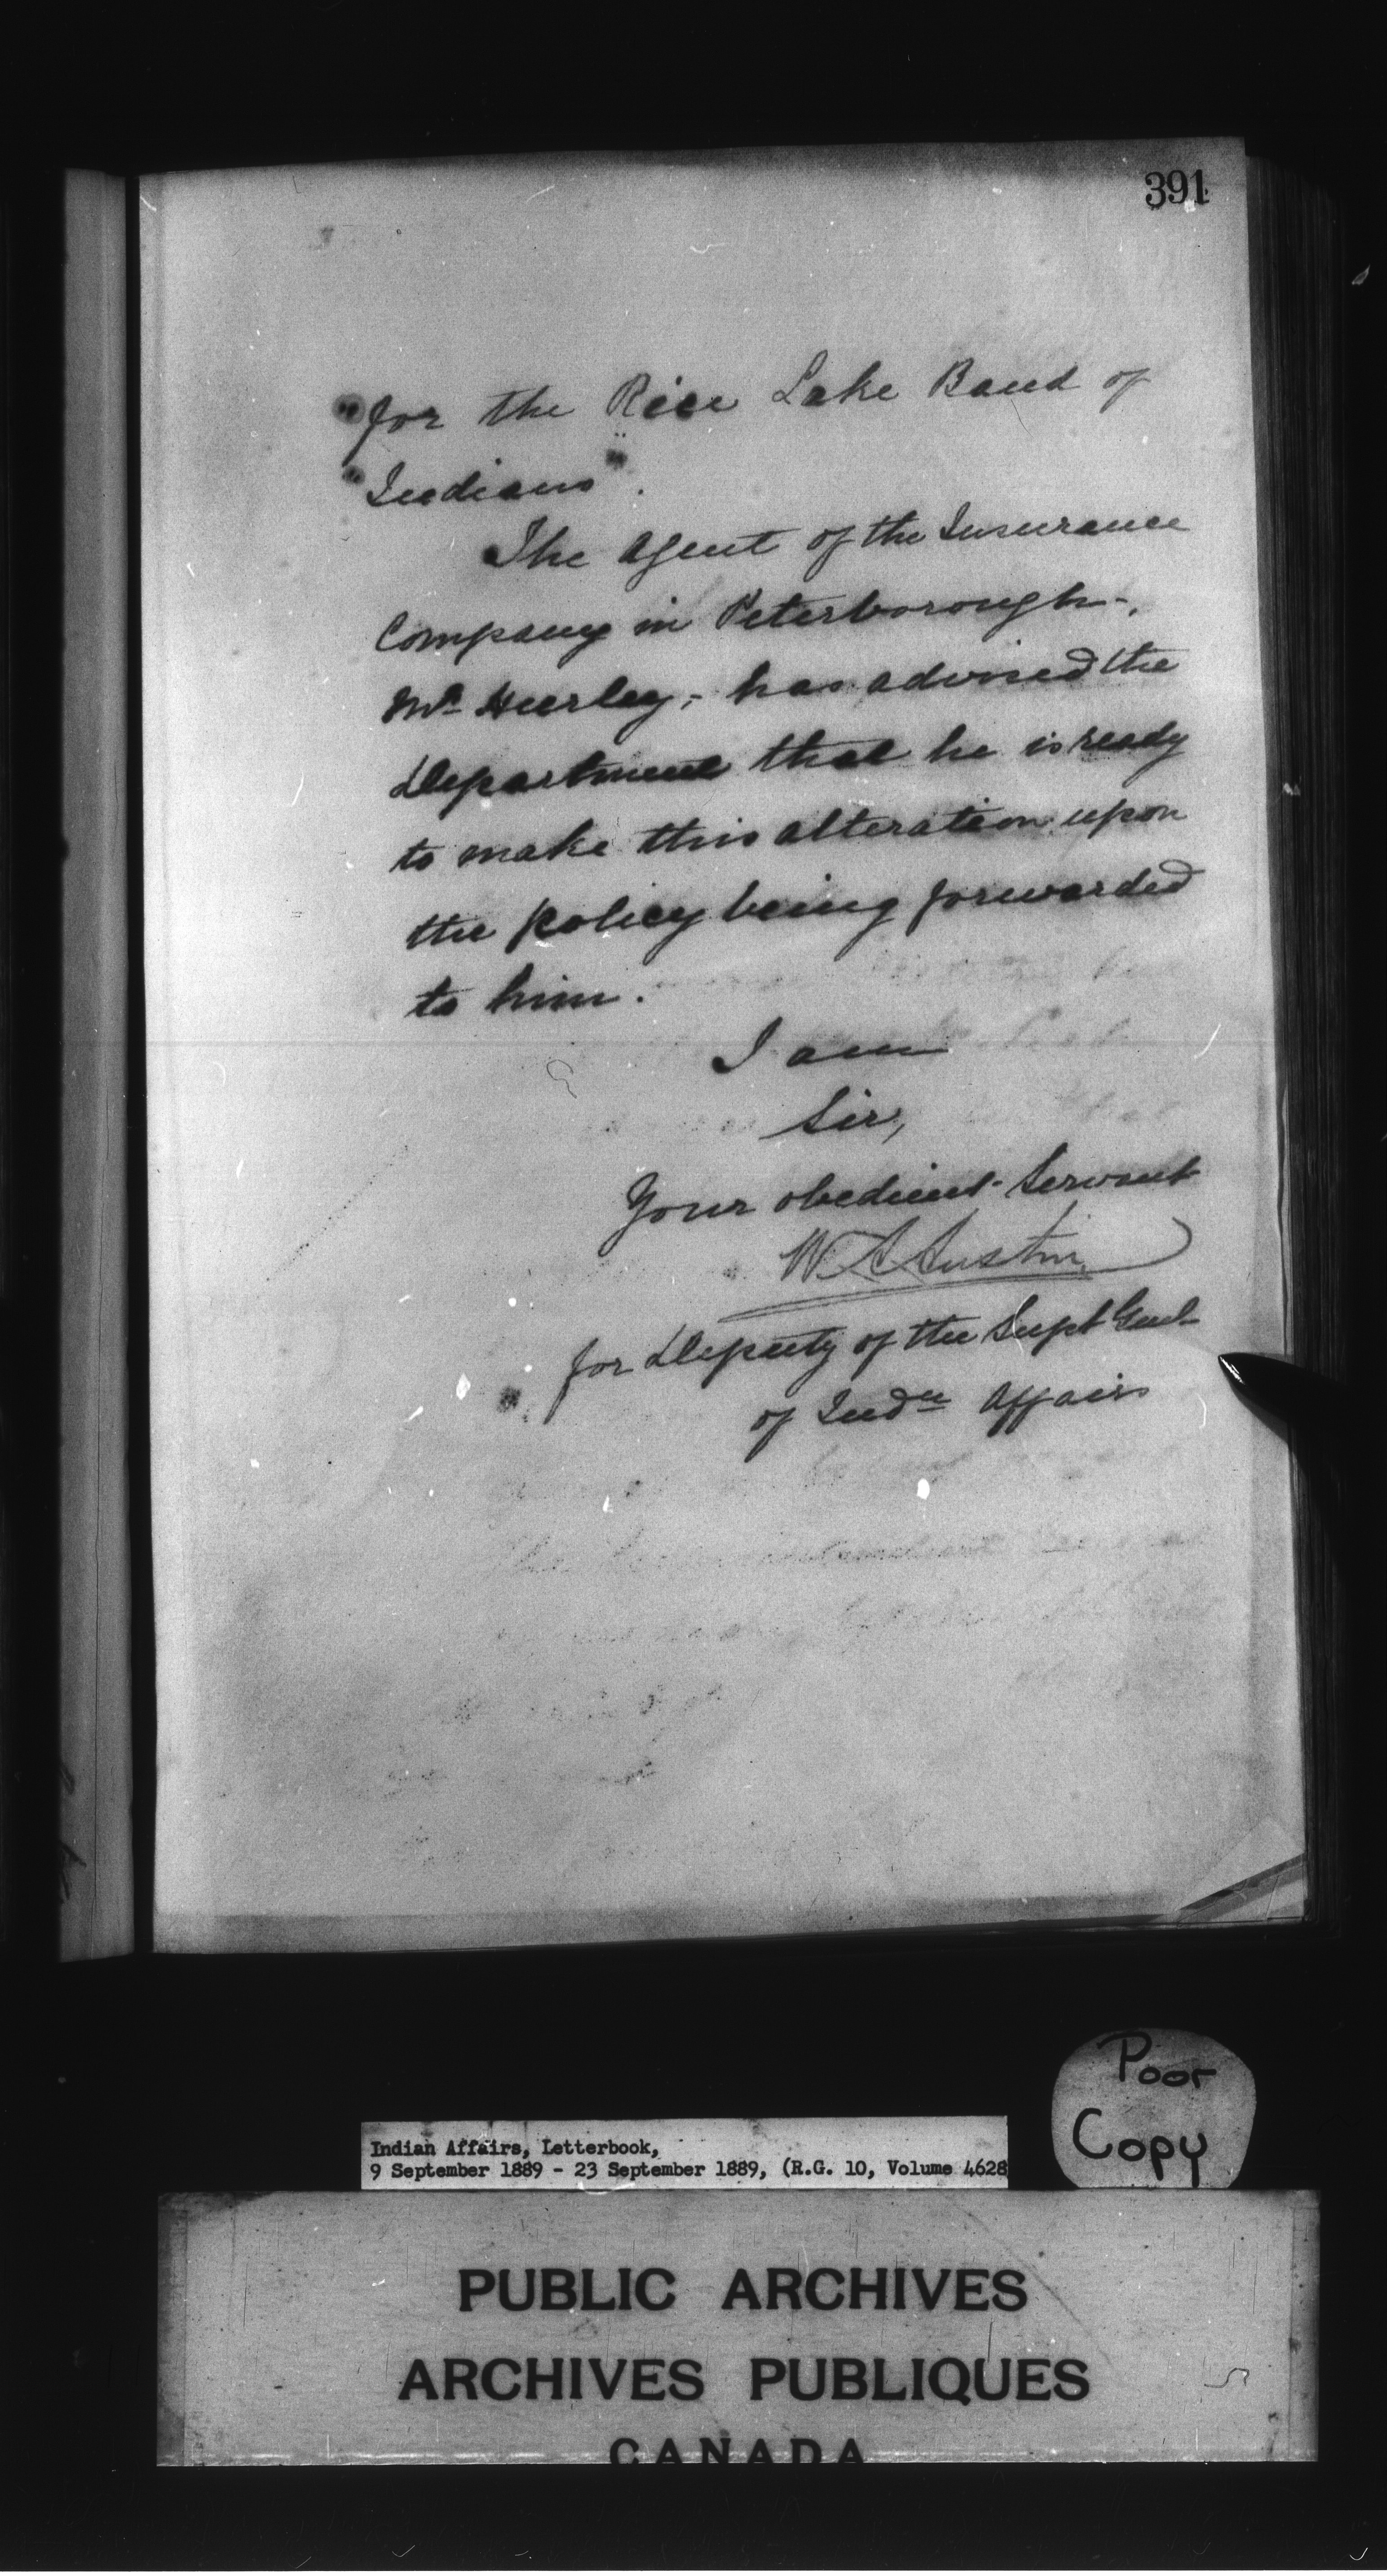 391
"for the Rice Lake Band of
"Indians".
The Agent of the Insurance
Company in Peterborough-,
Mr Hurley,- has advised the
Department that he is ready
to make this alteration upon
the policy being forwarded
to him.
I am
Sir,
Your obedient Servant
W A Austin
for Deputy of the Supt Genl
of Indn Affairs
Poor
Copy
Indian Affairs, Letterbook,
9 September 1889 - 23 September 1889, (R.G. 10, Volume 4628
PUBLIC ARCHIVES
ARCHIVES PUBLIQUES
CANADA